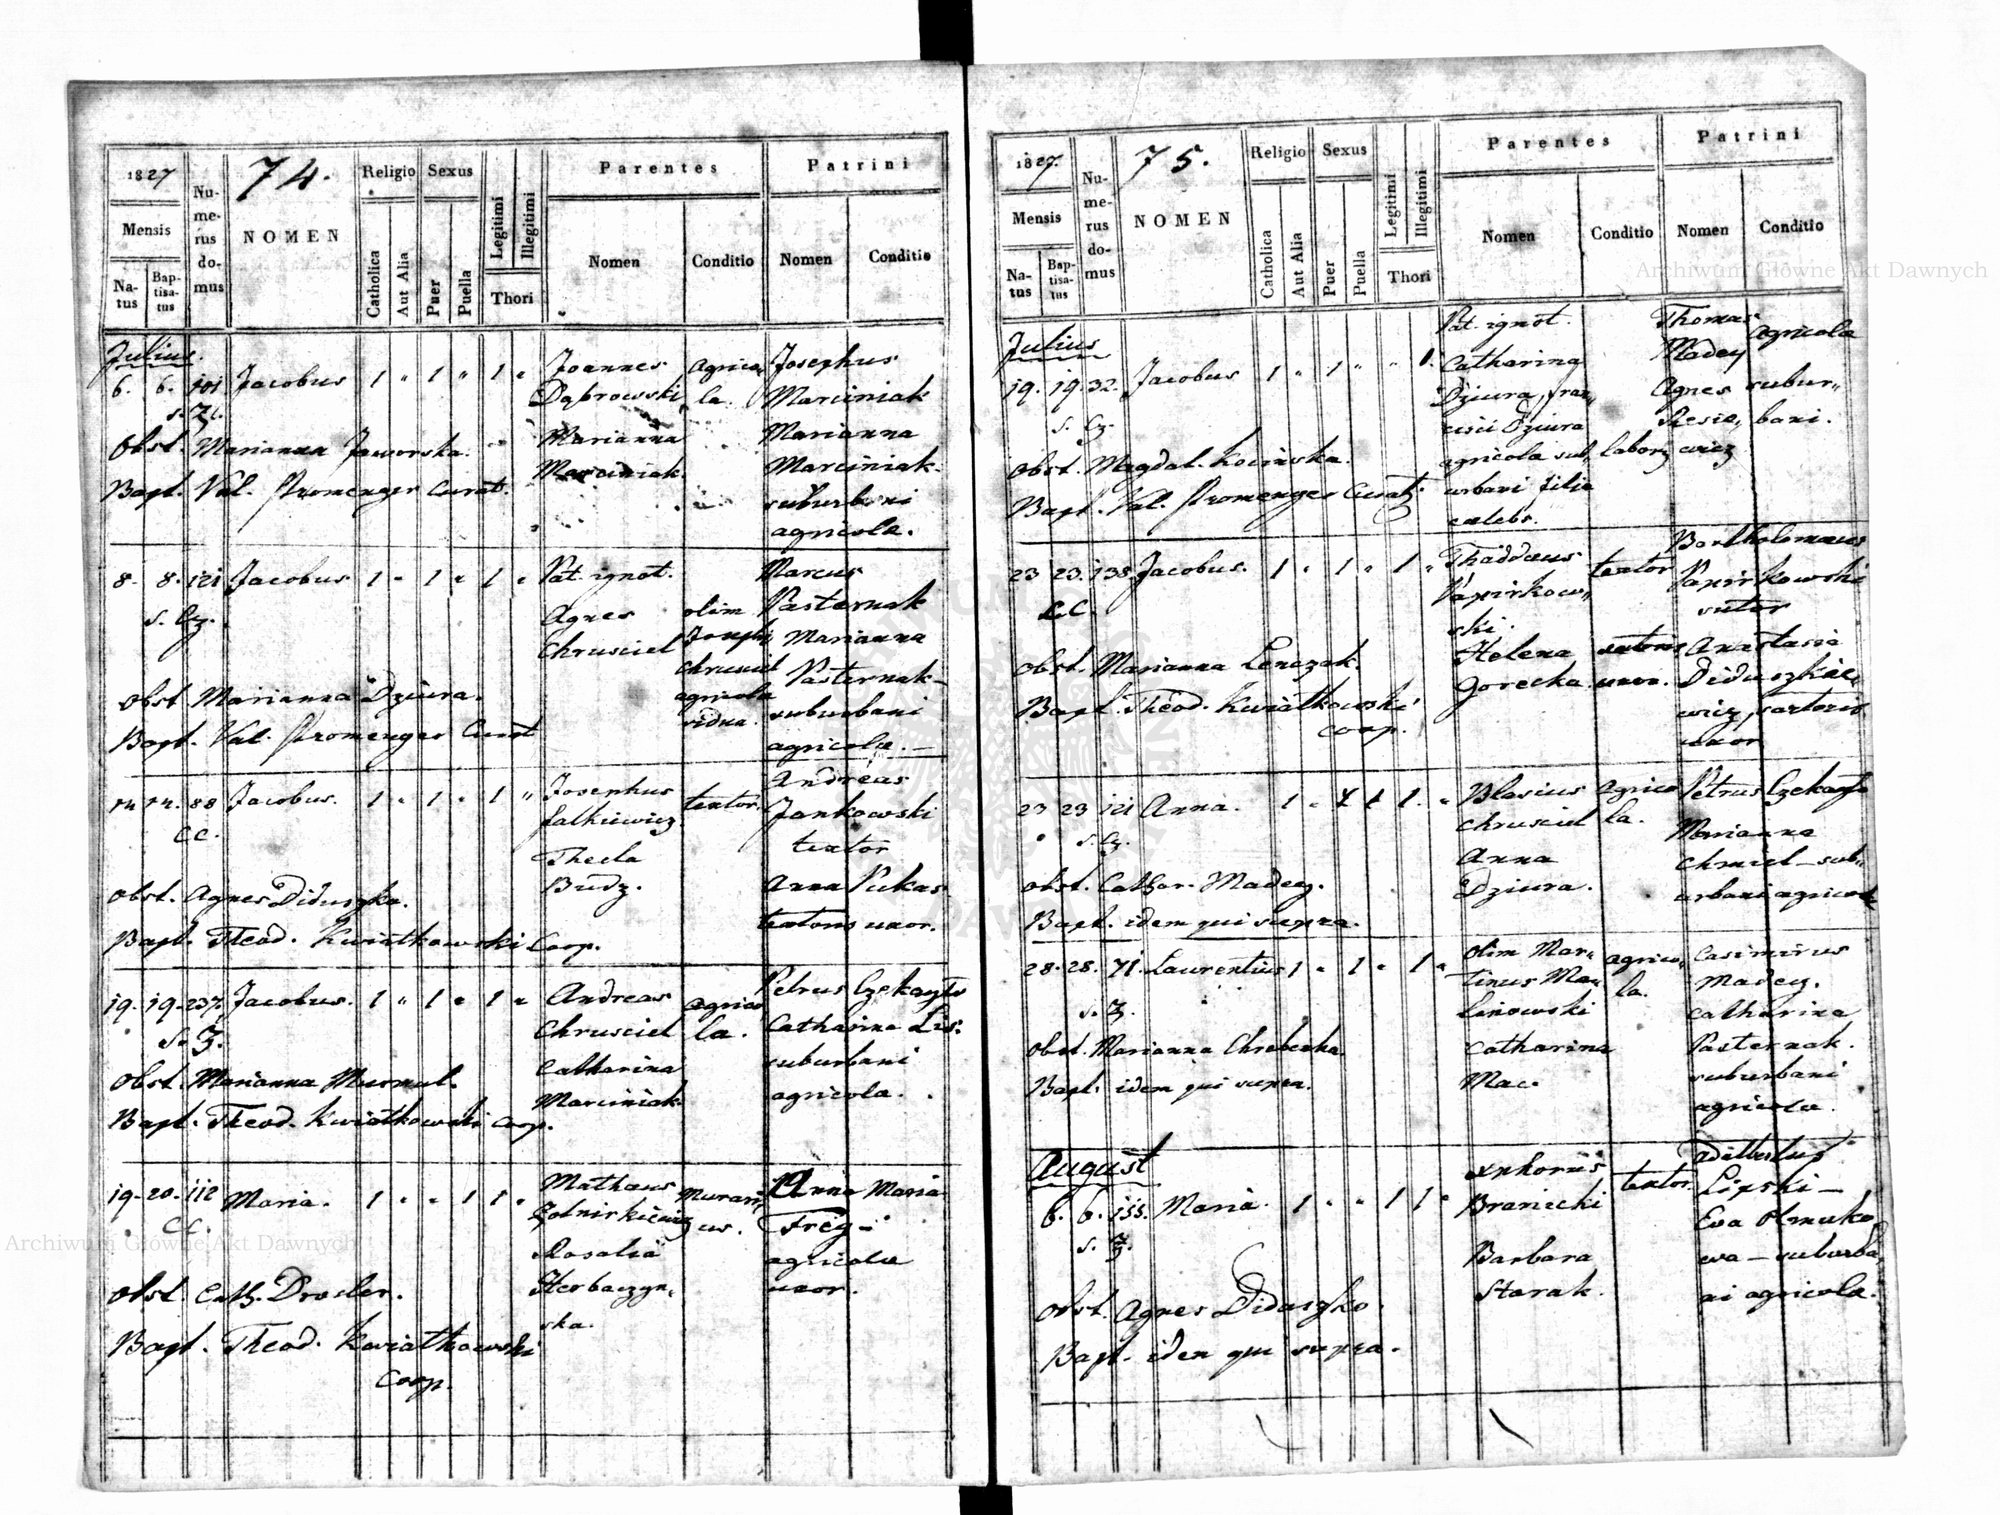 1827
74.
Numerus domus
NOMEN
Religio
Sexus
Legitimi
Illegitimi
Thori
Parentes
Patrini
Mensis
Natus
Baptisatus
Catholica
Aut Alia
Puer
Puella
Nomen
Conditio
Nomen
Conditio
Julius.
6. 6. 101 Jacobus 1 " 1 " 1 "
Joannes
Dąbrowski
Agrico
la.
Josephus
Marciniak
Obst. Marianna Jaworska.
Marianna
Marciniak
Marianna
Marciniak
Bapt. Val. Promenger Curat.
suburbani
agricola.
8. 8. 121 Jacobus 1 " 1 " 1 "
s. Cz.
Pat. ignot.
Agnes
Chrusciel
olim
Josephi
Chrusciel
agricola
vidua.
Marcus
Pasternak
Marianna
Pasternak
suburbani
agricolæ.
Obst. Marianna Dziura.
Bapt. Val. Promenger Curat
14 14. 88 Jacobus. 1 " 1 " 1 "
CC.
Josephus
Falkiewicz
Thecla
Budz.
textor.
Andreas
Jankowski
textor
Anna Pukas
textoris uxor.
Obst. Agnes Diduszka.
Bapt. Theod. Kwiatkowski Coop.
19. 19. 237. Jacobus. 1 " 1 " 1 "
S. Z.
Andreas
Chrusciel
Catharina
Marciniak
agrico
la.
Petrus Czekayło
Catharina Lis.
suburbani
agricola.
Obst. Marianna Murmul.
Bapt. Theod. Kwiatkowski Coop.
19. 20. 112 Maria. 1 " " 1 1 "
CC.
Mathæus
Żołnirkiewicz
Rosalia
Herbaczyn,
ska.
murari,
us.
Anna Maria
Frey
agricolæ
uxor.
Obst. Cath. Drexler.
Bapt. Theod. Kwiatkowski
Coop.
1827.
75.
Numerus domus
NOMEN
Religio
Sexus
Legitimi
Illegitimi
Thori
Parentes
Patrini
Mensis
Natus
Baptisatus
Catholica
Aut Alia
Puer
Puella
Nomen
Conditio
Nomen
Conditio
Julius
19. 19. 32. Jacobus 1 " 1 " " 1.
s. Cz.
Pat. ignot.
Catharina
Dziura, Fran,
cisci Dziura
agricola sub,
urbani filia
cælebs.
Thomas
Madey
agricola
Agnes subur,
bani.
Obst. Magdal. Kocinska.
Bapt. Val. Promenger Curat.
23 23. 138 Jacobus. 1 " 1 " 1 "
C.C.
Thaddæus
Papirkow,
ski.
Helena
Gorecka
textor
uxor.
Bartholomæus
Papirkowski
sutor
Anastasia
Diduszkie,
wicz, sartoris
uxor
Obst. Marianna Lenczak.
Bapt. Theod. Kwiatkowski
coop.
23 23 121 Anna. 1 " 1 1 "
S. Cz.
Blasius
Chrusciel
Anna
Dziura.
agrico
la.
Petrus Czekayło
Marianna
Chmiel sub,
urbani agricol
Obst. Cathar. Madey.
Bapt. idem qui supra.
28. 28. 71. Laurentius 1 " 1 " 1 "
s. Z.
olim Mar,
tinus Ma,
linowski
Catharina
Mac.
agrico,
la.
Casimirus
Madey.
Catharina
Pasternak.
suburbani
agricolæ.
Obst. Marianna Chrebecka.
Bapt. idem qui supra.
August
6. 6. 155. Maria. 1 " " 1 1 "
S. Z.
Braniecki
Barbara
Starak.
textor.
Adalbertus
Lipski
Eva Olmuko
wa suburba,
ni agricola.
Obst. Agnes Diduszko.
Bapt. idem qui supra.
Archiwum Główne Akt Dawnych
Archiwum Główne Akt Dawnych